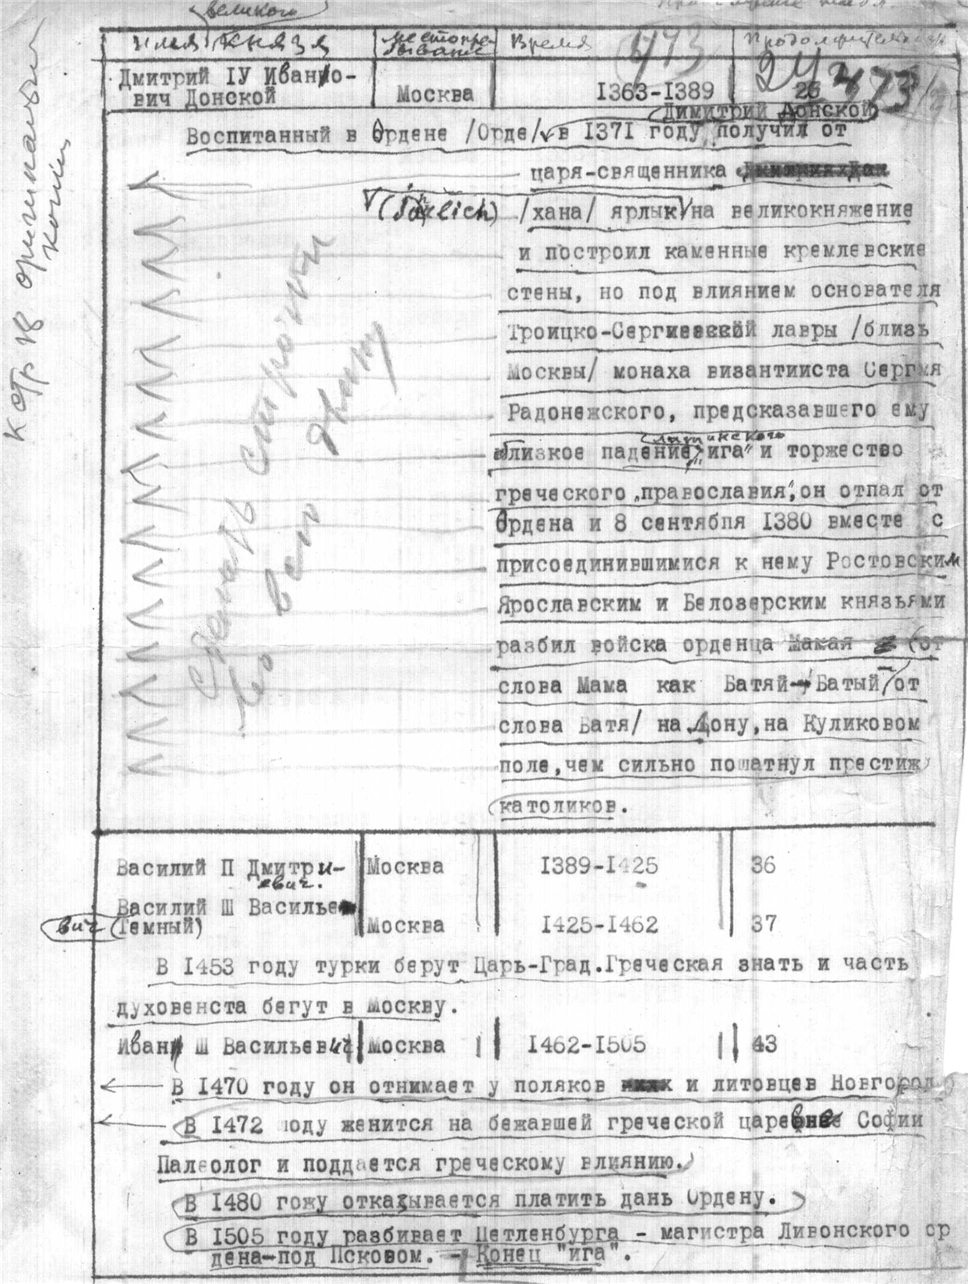 великого
имя князя местопребывание Время Продолжительн
473
Дмитрий IУ Ивано-
вич Донской Москва I363-I389 26 24 473
Димитрий Донской
Воспитанный в Ордене /Орде/ в I37I году получил от
царя-священника
(Jarlich) /хана/ ярлык на великокняжение
и построил каменные кремлевские
стены, но под влиянием основателя
Троицко-Сергиевской лавры /близь
Москвы/ монаха византииста Сергия
Радонежского, предсказавшего ему
латинского
близкое падение "ига" и торжество
греческого "православия", он отпал от
Ордена и 8 сентября I380 вместе с
присоединившимися к нему Ростовским
Ярославским и Белозерским князьями
разбил войска орденца Мамая (от
слова Мама как Батяй-Батый/от
слова Батя/ на Дону, на Куликовом
поле, чем сильно пошатнул престиж
католиков.
Сделать строчки
во всю длину
к стр IV оригинальной
копии
Василий П Дмитри- Москва I389-I425 36
евич.
Василий Ш Василье
вич (Темный) Москва I425-I462 37
В I453 году турки берут Царь-Град. Греческая знать и часть
духовенста бегут в Москву.
Иван Ш Васильевич Москва I462-I505 43
В I470 году он отнимает у поляков и литовцев Новгород
В I472 году женится на бежавшей греческой царевне Софии
Палеолог и поддается греческому влиянию.
В I480 гожу отказывается платить дань Ордену.
В I505 году разбивает Петленбурга - магистра Ливонского ор
дена-под Псковом. - Конец "ига".